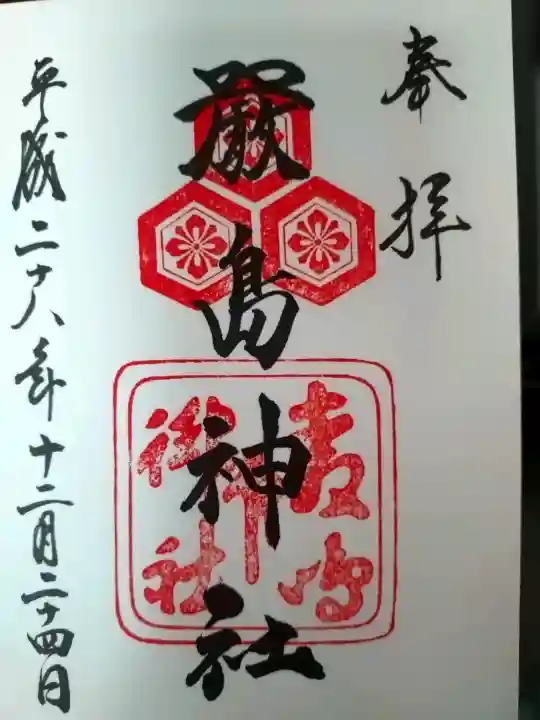 奉拝
厳島神社
平成二十八年十二月二十四日